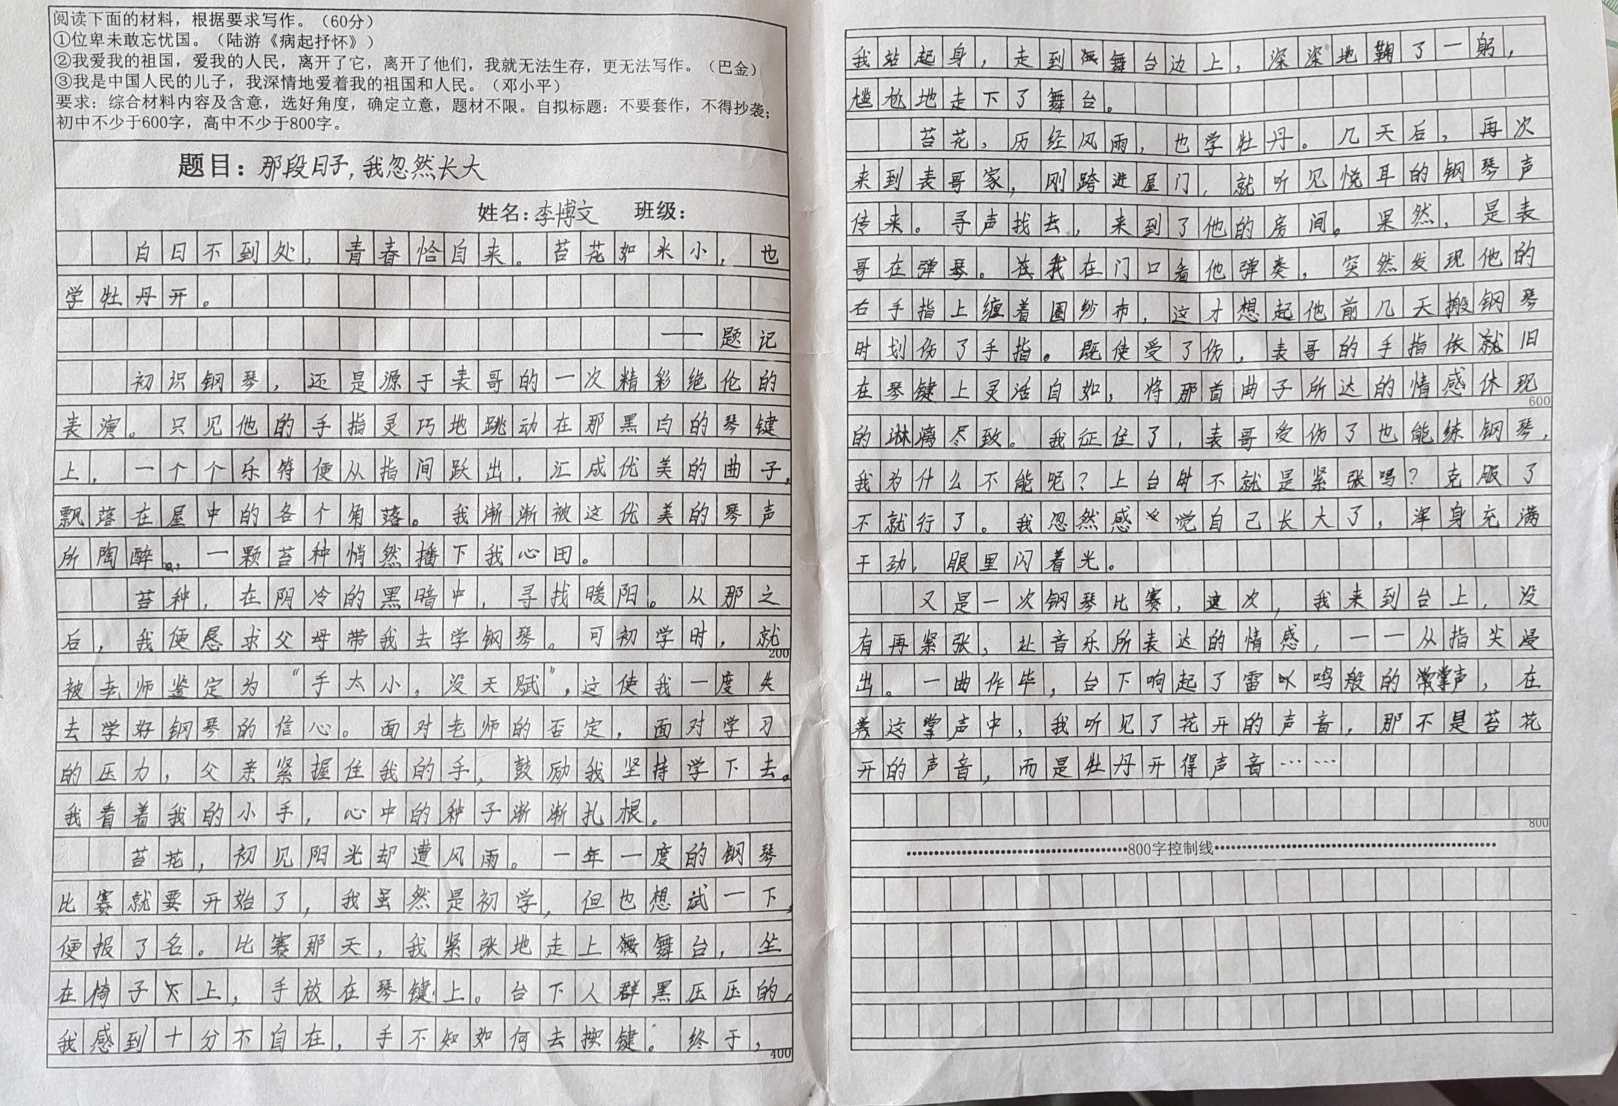 阅读下面的材料，根据要求写作。（60分）
①位卑未敢忘忧国。（陆游《病起抒怀》）
②我爱我的祖国，爱我的人民，离开了它，离开了他们，我就无法生存，更无法写作。（巴金）
③我是中国人民的儿子，我深情地爱着我的祖国和人民。（邓小平）
要求：综合材料内容及含意，选好角度，确定立意，题材不限。自拟标题：不要套作，不得抄袭；
初中不少于600字，高中不少于800字。
题目：那段日子，我忽然长大
姓名：李博文 班级：
白日不到处，青春恰自来。苔花如米小，也
学牡丹开。
——题记
初识钢琴，还是源于表哥的一次精彩绝伦的
表演。只见他的手指灵巧地跳动在那黑白的琴键
上，一个个乐符便从指间跃出，汇成优美的曲子，
飘落在屋中的各个角落。我渐渐被这优美的琴声
所陶醉。一颗苔种悄然播下我心田。
苔种，在阴冷的黑暗中，寻找暖阳。从那之
后，我便恳求父母带我去学钢琴。可初学时，就
200
被老师鉴定为“手太小，没天赋”，这使我一度失
去学好钢琴的信心。面对老师的否定，面对学习
的压力，父亲紧握住我的手，鼓励我坚持学下去。
我看着我的小手，心中的种子渐渐扎根。
苔花，初见阳光却遭风雨。一年一度的钢琴
比赛就要开始了，我虽然是初学，但也想试一下，
便报了名。比赛那天，我紧张地走上舞台，坐
在椅子上，手放在琴键上。台下人群黑压压的，
我感到十分不自在，手不知如何去按键。终于，
400
我站起身，走到舞台边上，深深地鞠了一躬，
尴尬地走下了舞台。
苔花，历经风雨，也学牡丹。几天后，再次
来到表哥家，刚跨进屋门，就听见悦耳的钢琴声
传来。寻声找去，来到了他的房间。果然，是表
哥在弹琴。我在门口看他弹奏，突然发现他的
右手指上缠着圈纱布，这才想起他前几天搬钢琴
时划伤了手指。既使受了伤，表哥的手指依就旧
在琴键上灵活自如，将那首曲子所达的情感体现
600
的淋漓尽致。我怔住了，表哥受伤了也能练钢琴，
我为什么不能呢？上台时不就是紧张吗？克服了
不就行了。我忽然感觉自己长大了，浑身充满
干劲，眼里闪着光。
又是一次钢琴比赛，这次，我来到台上，没
有再紧张，让音乐所表达的情感，一一从指尖漫
出。一曲作毕，台下响起了雷鸣般的掌声，在
这掌声中，我听见了花开的声音，那不是苔花
开的声音，而是牡丹开得声音……
800
800字控制线